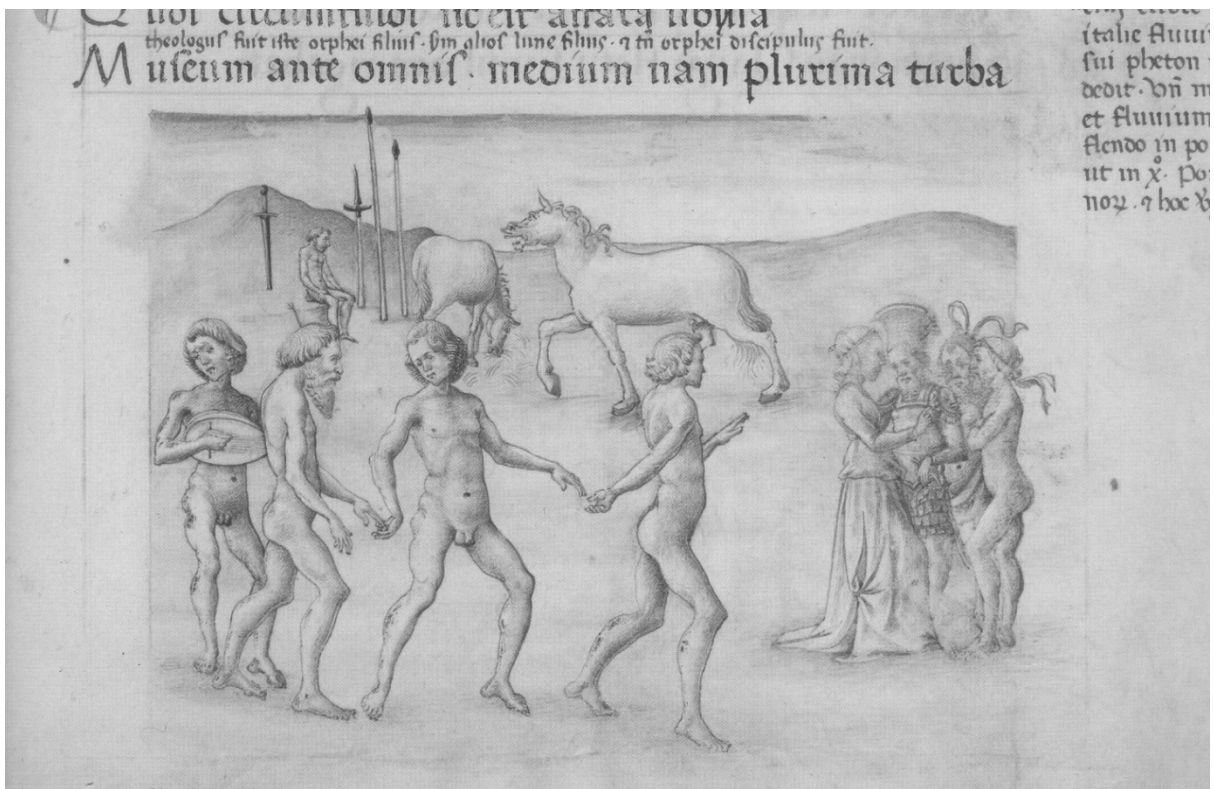 Quos circumfusos sic est affata sibylla
theologus fuit iste orphei filius · Vm alios lune filius · ⁊ tñ orphei discipulus fuit ·
Museum ante omnis · medium nam plurima turba
italie fluui
sui pheton
dedit · Vñ m
et fluuium
flendo in po
ut in x̊ · Po
noꝝ · ⁊ hoc